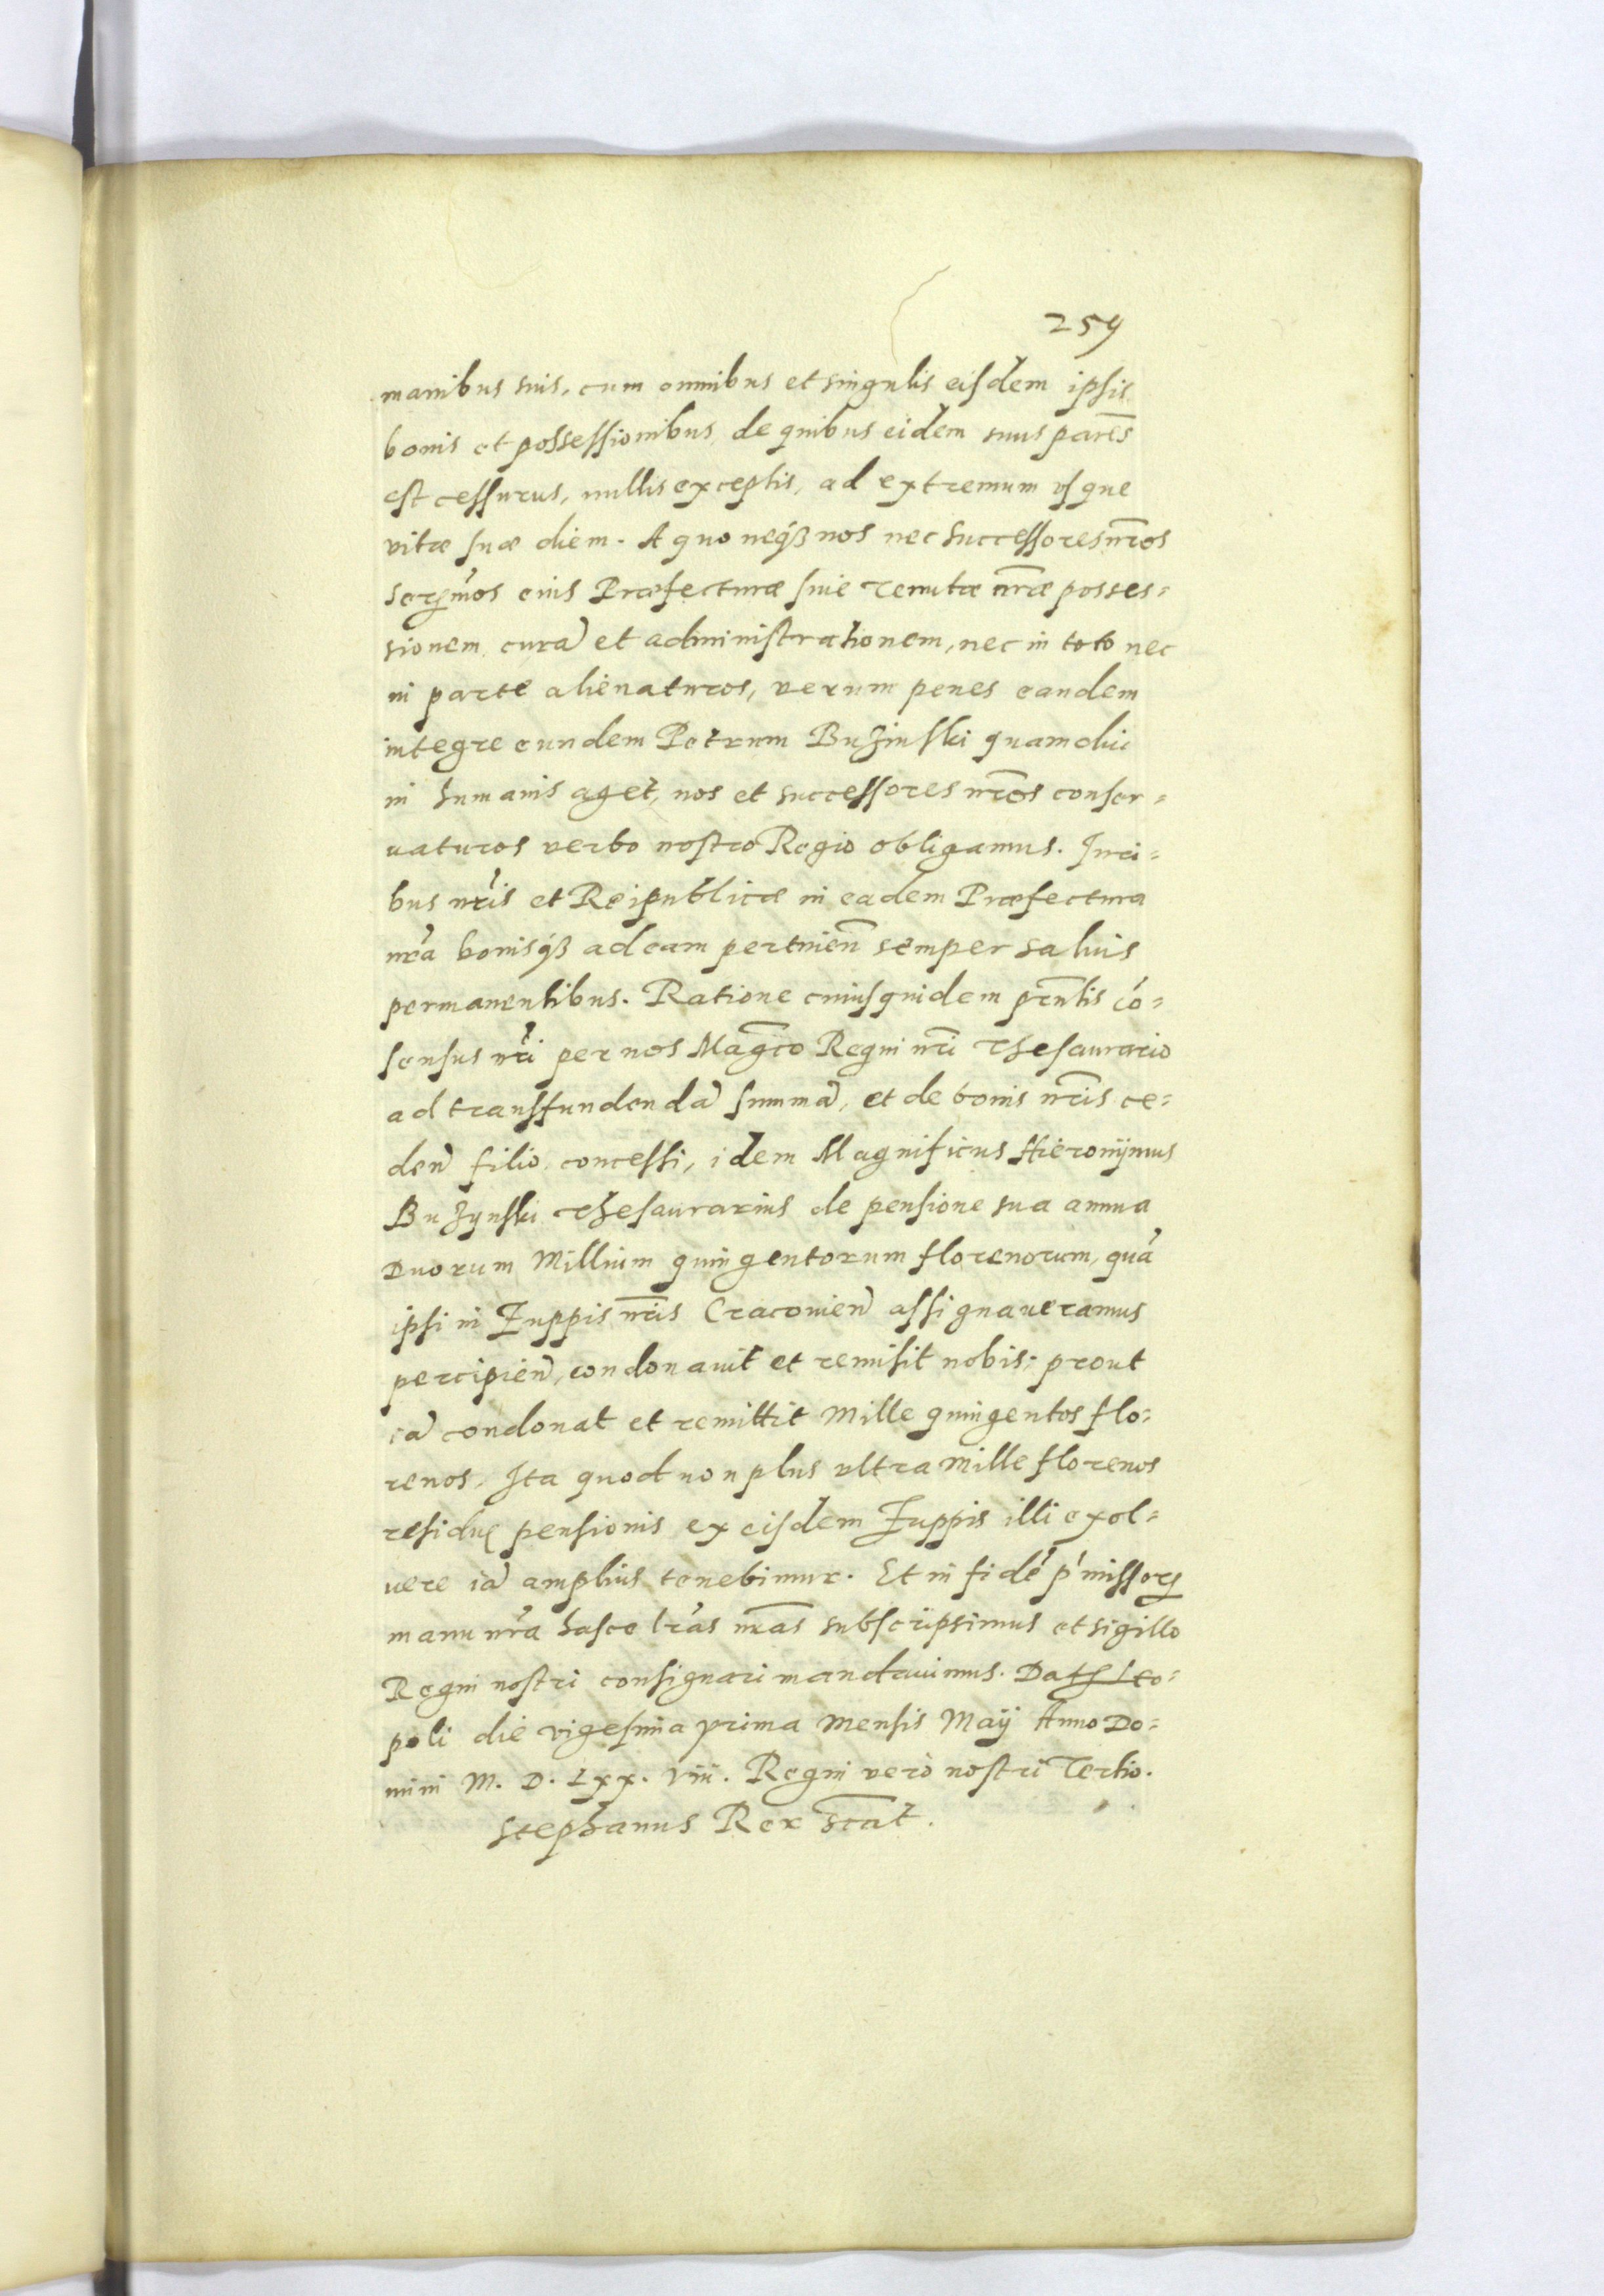 259
manibus suis, cum omnibus et singulis eisdem ipsis
bonis et possessionibus, de quibus eidem suus parēs
est cessurus, nullis exceptis, ad extremum vsque
vitæ suæ diem. A quo neqꝫ nos nec Successores nr̄os
Serm̄os eius Præfecturæ siue tenutæ nr̄æ posses=
sionem curā et administrationem, nec in toto nec
in parte alienaturos, verum penes eandem
integre eundem Petrum Buzinski quamdiu
in humanis aget, nos et successores nr̄os conser=
uaturos verbo nostro Regio obligamus. Iuri=
bus nr̄is et Reipublicæ in eadem Præfectura
nr̄a bonisqꝫ ad eam pertinen̄ semper saluis
permanentibus. Ratione cuiusquidem pn̄tis cō=
sensus nr̄i per nos Maḡco Regni nr̄i Thesaurario
ad transfundendā summā, et de bonis nr̄is ce=
den̄ filio concessi, idem Magnificus Hieronijmus
Buzynski Thesaurarius de pensione sua annua
Duorum Millium quingentorum florenorum, quā
ipsi in Zuppis nr̄is Cracouien̄ assignaueramus
percipien̄, condonauit et remisit nobis; prout
iā condonat et remittit Mille quingentos flo=
renos, Ita quod non plus vltra Mille florenos
residuę pensionis ex eisdem Zuppis illi exol=
uere iā amplius tenebimur. Et in fidē p̄missorꝝ
manu nr̄a hasce lr̄as nr̄as subscripsimus et sigillo
Regni nostri consignari mandauimus. Datꝭ Leo=
poli die vigesima prima Mensis Maij Anno Do=
mini M. D. Lxx. Viii. Regni verò nostri Tertio.
Stephanus Rex sc̄at.